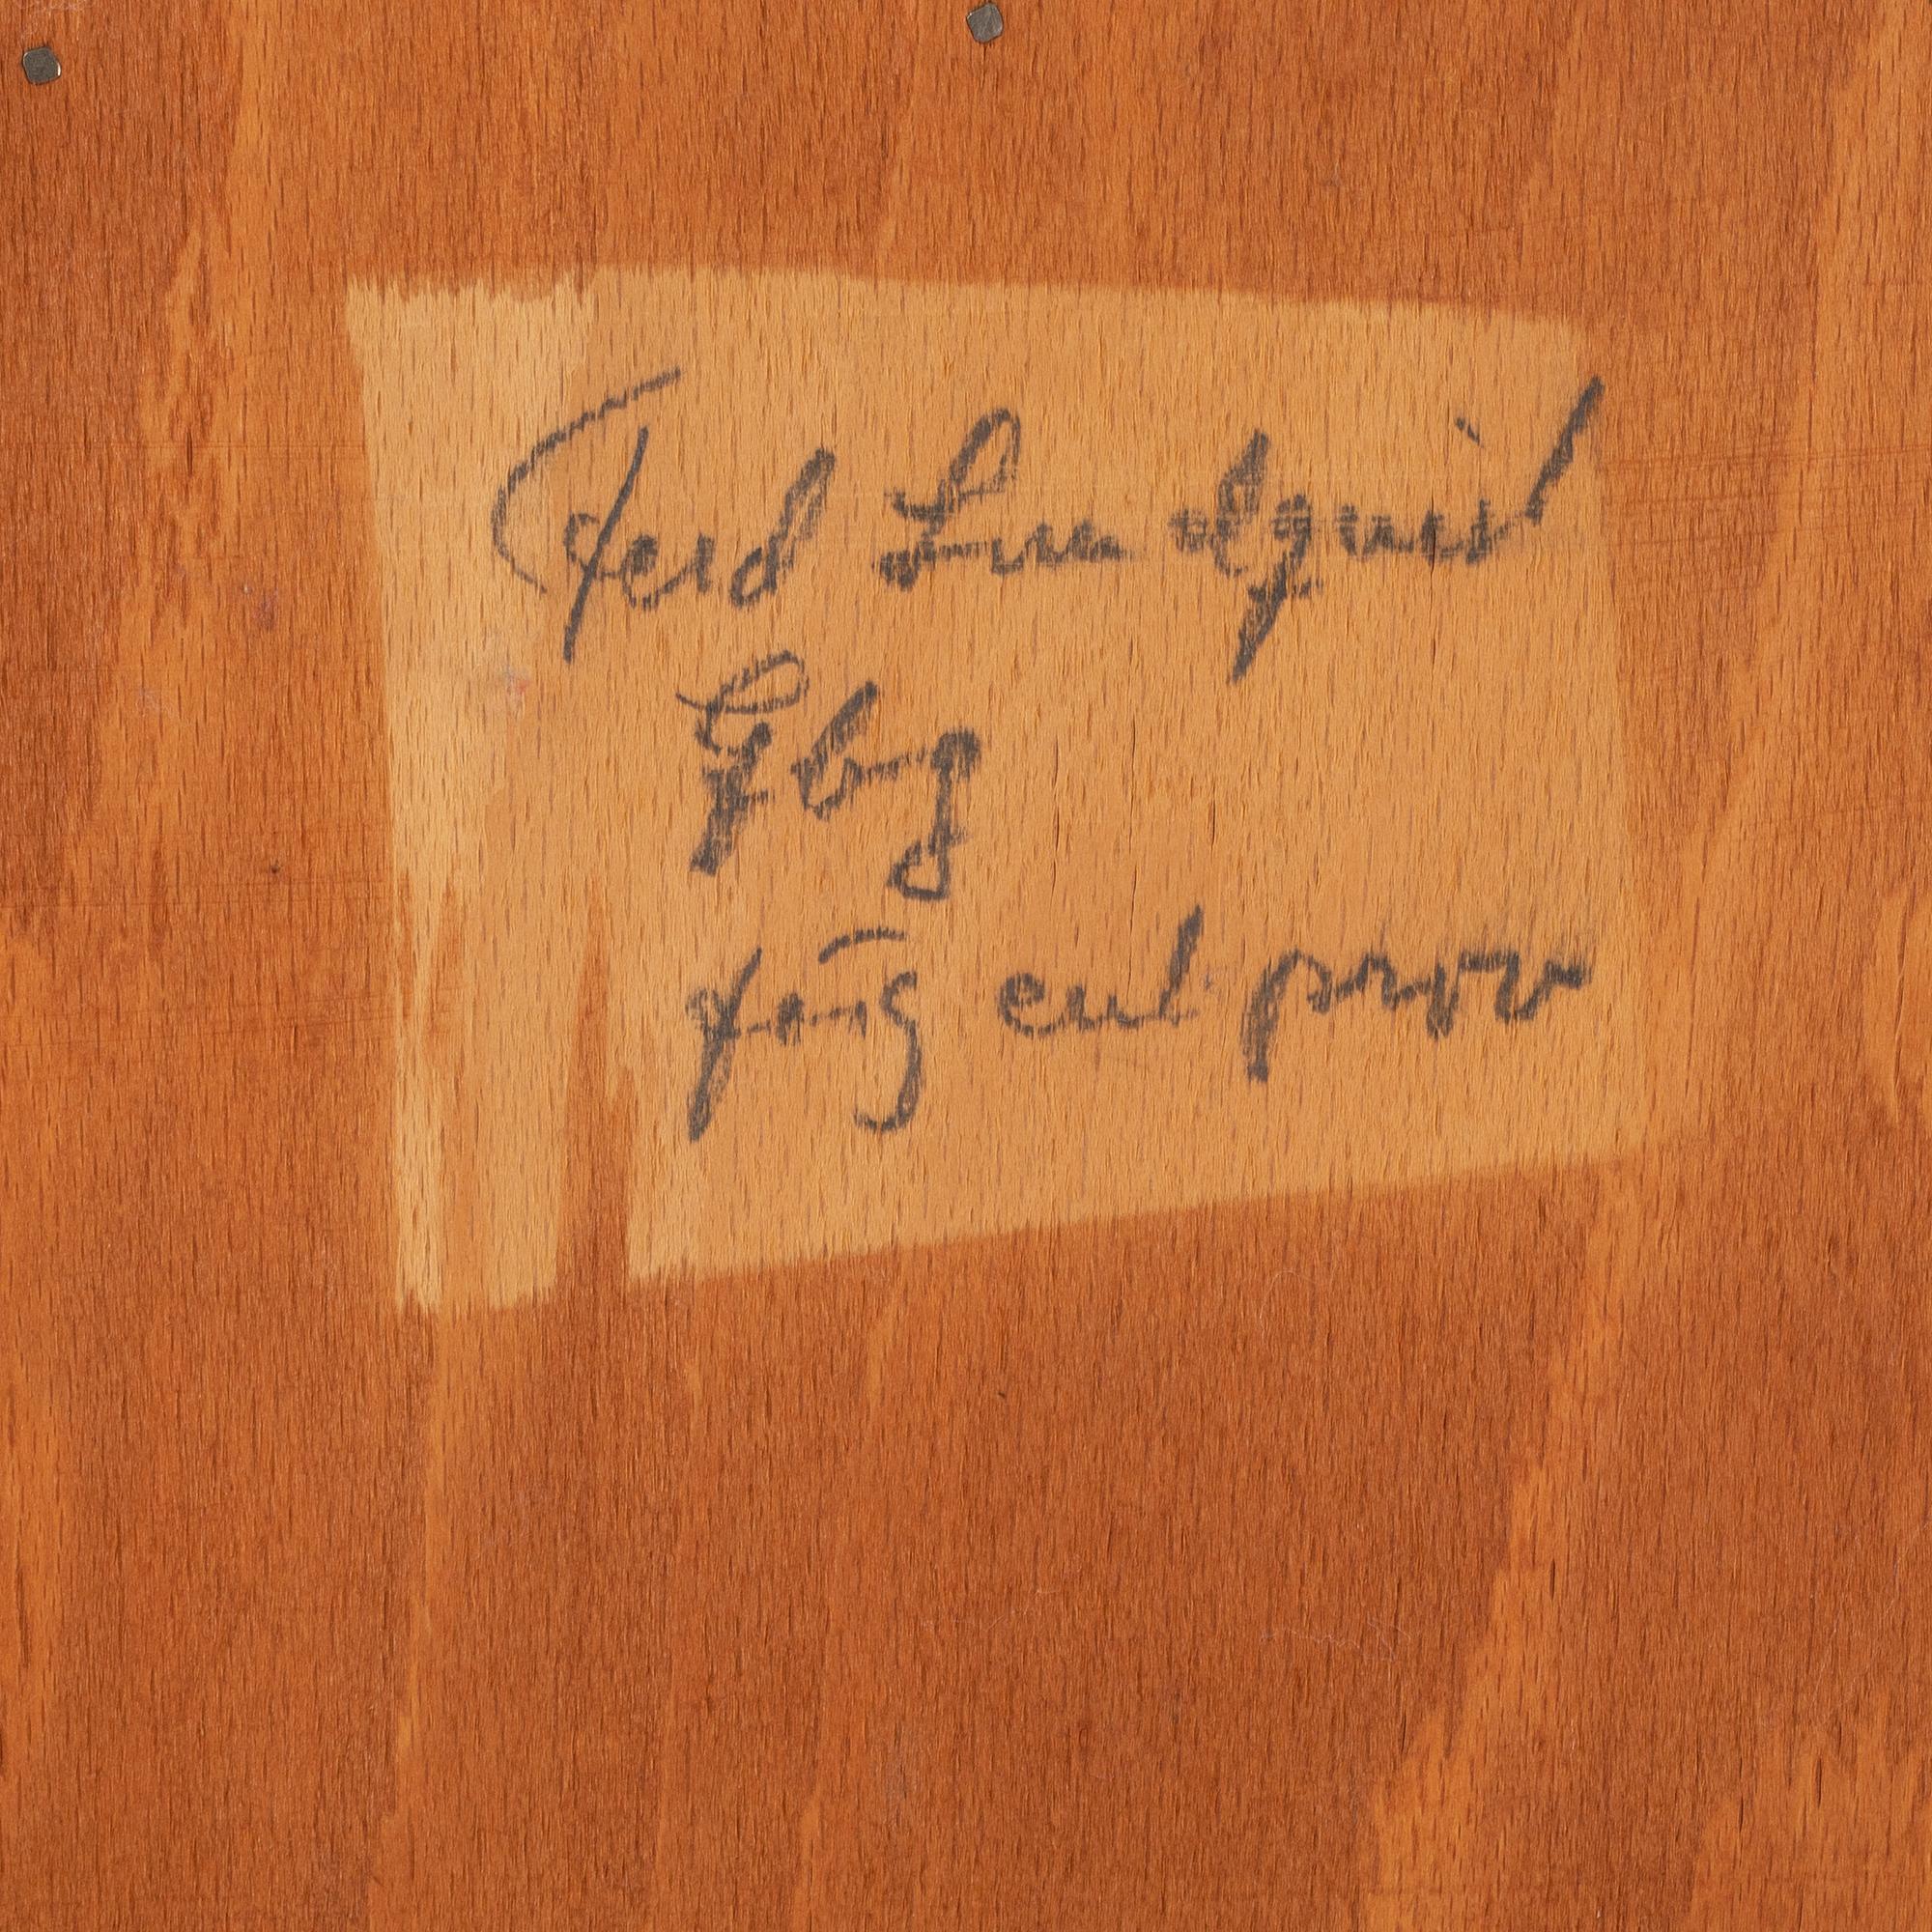 Ferd Lundquist
Gbg
färg enl prov